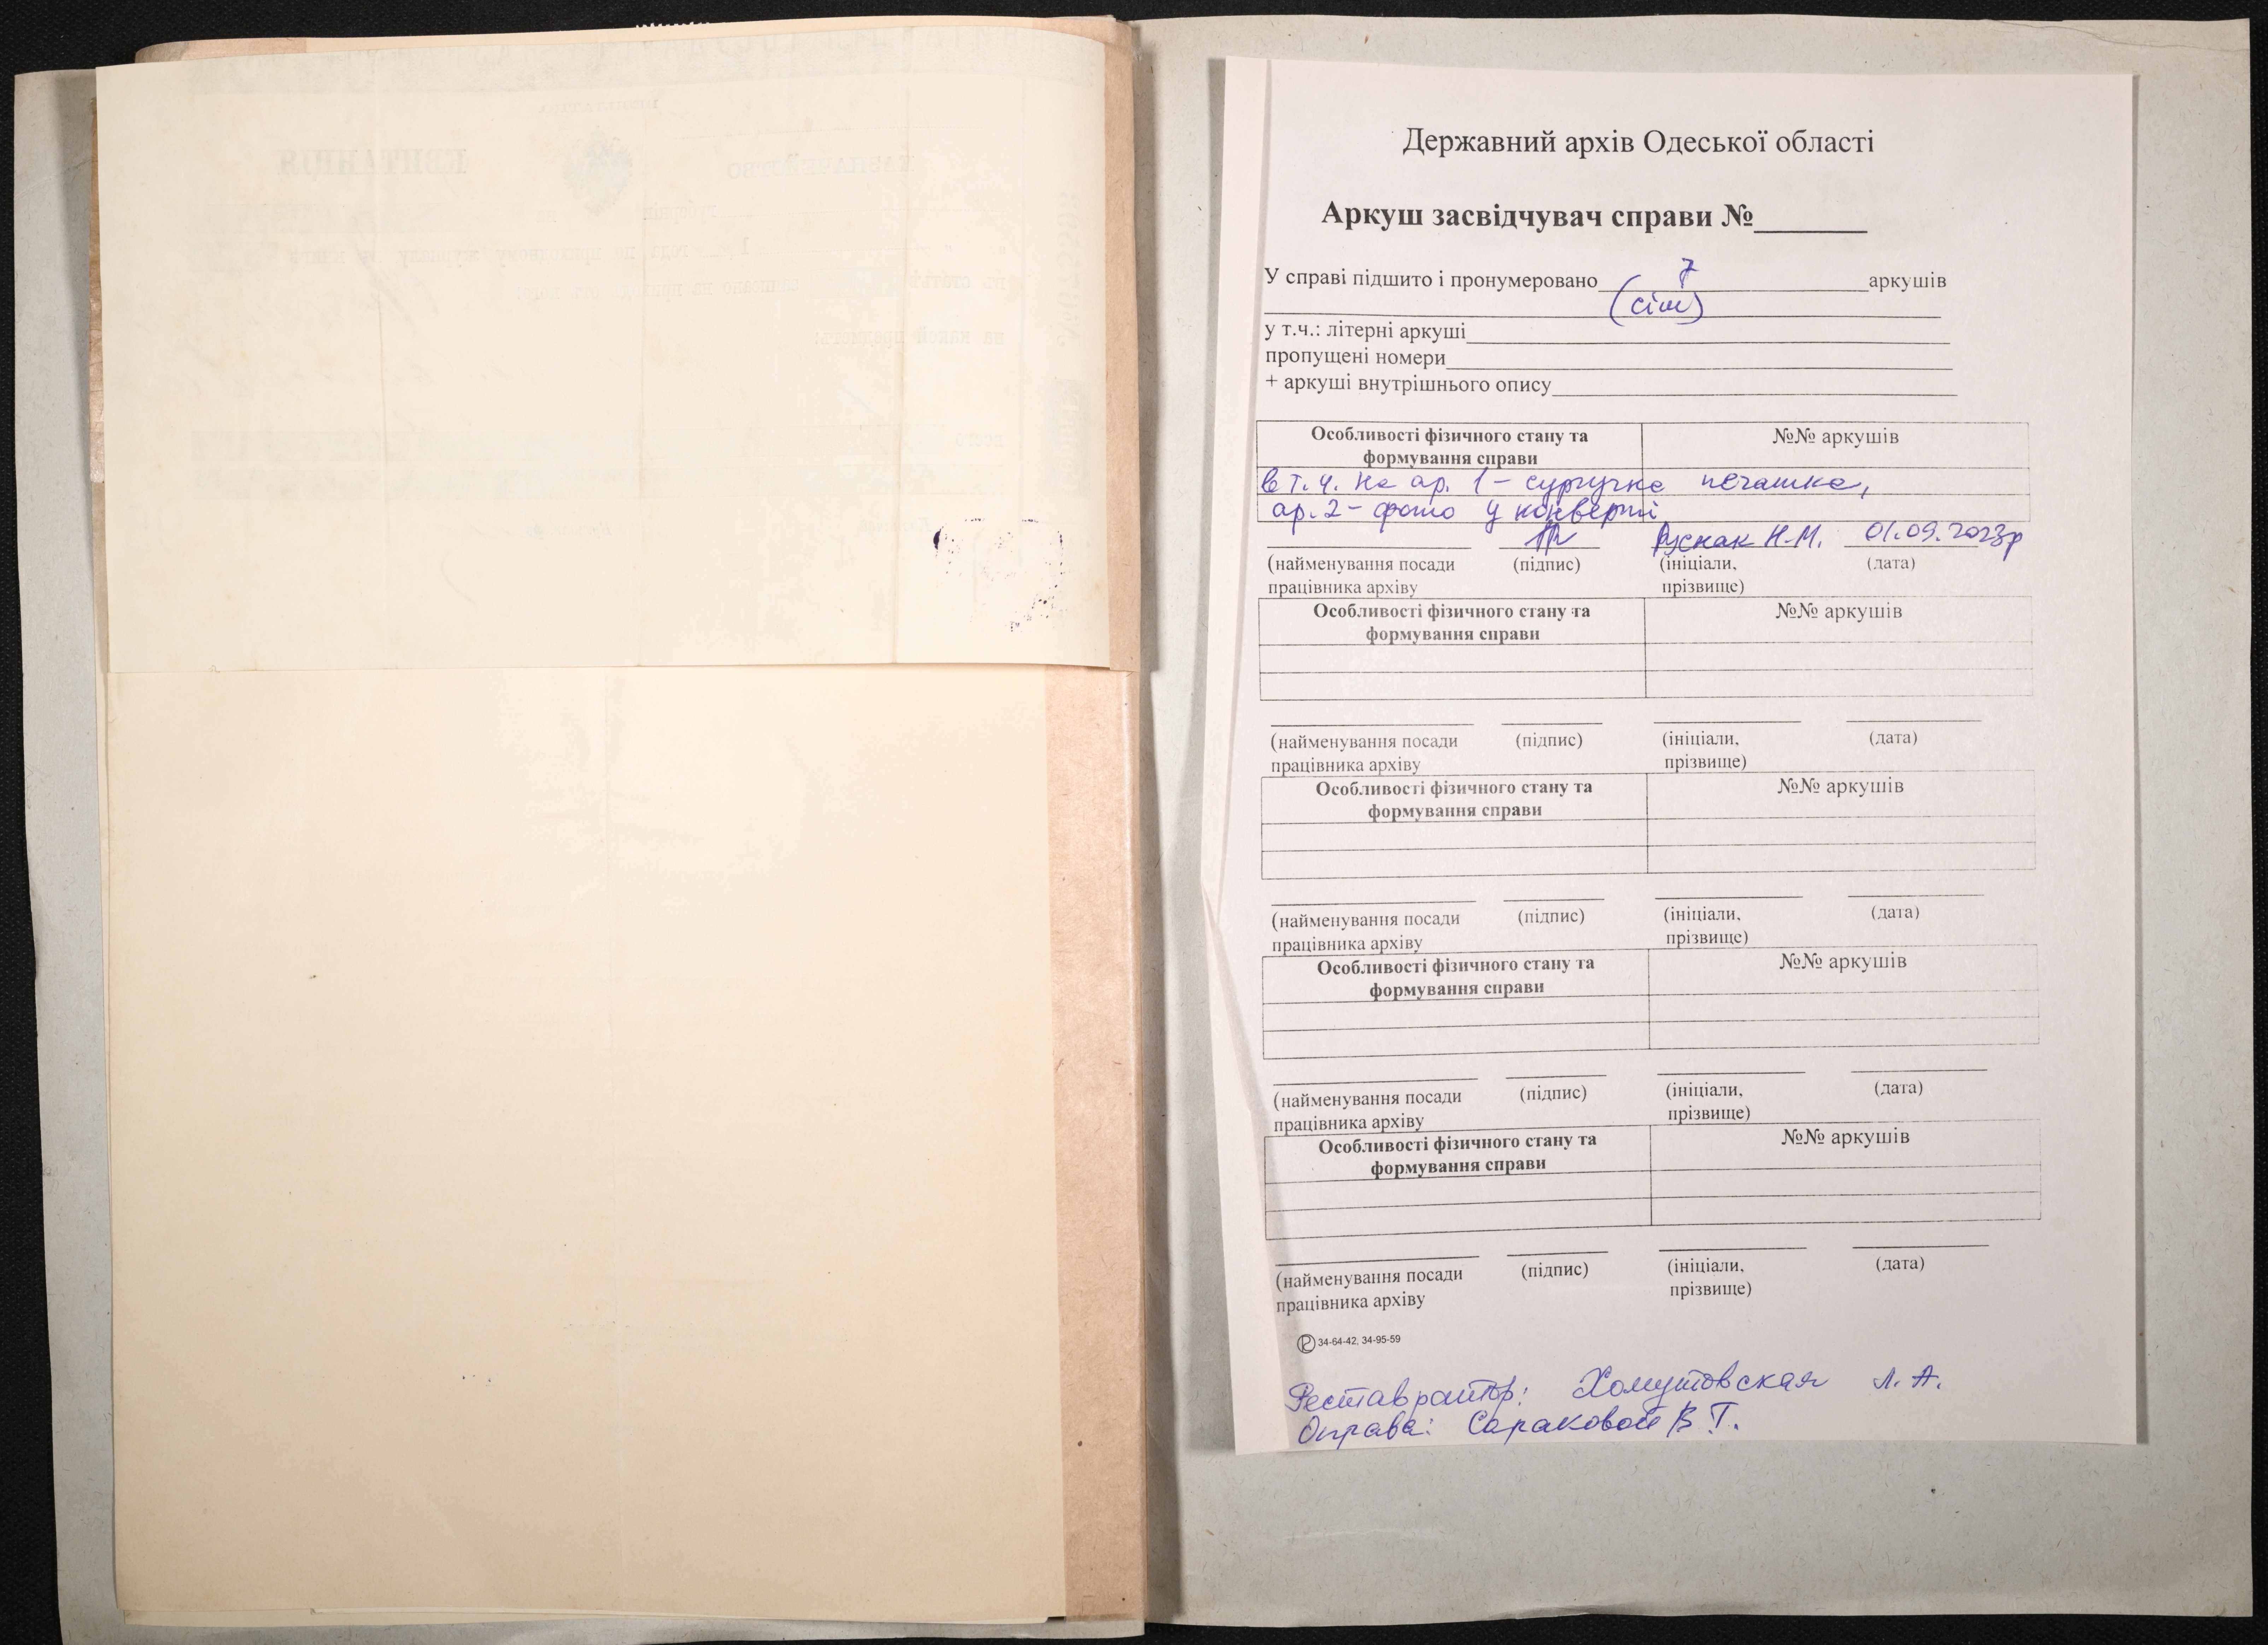 КВИТАНЦІЯ
КАЗНАЧЕЙСТВО
губерніи
на
1 года по приходному журналу
записано на приходъ отъ кого:
на какой предметъ:
всего
Державний архів Одеської області
Аркуш засвідчувач справи №
У справі підшито і пронумеровано 7 аркушів
(сім)
у т.ч.: літерні аркуші
пропущені номери
+ аркуші внутрішнього опису
Особливості фізичного стану та формування справи №№ аркушів
в т.ч. на ар. 1 – сургучна печатка,
ар. 2 – фото у конверті
Руснак Н.М. 01.09.2023р
(найменування посади (підпис) (ініціали, (дата)
працівника архіву прізвище)
Особливості фізичного стану та №№ аркушів
формування справи
(найменування посади (підпис) (ініціали, (дата)
працівника архіву прізвище)
Особливості фізичного стану та №№ аркушів
формування справи
(найменування посади (підпис) (ініціали, (дата)
працівника архіву прізвище)
Особливості фізичного стану та №№ аркушів
формування справи
(найменування посади (підпис) (ініціали, (дата)
працівника архіву прізвище)
Особливості фізичного стану та №№ аркушів
формування справи
(найменування посади (підпис) (ініціали, (дата)
працівника архіву прізвище)
34-64-42, 34-95-59
Реставратор: Хомутовская Л. А.
Оправа: Сараковой В Т.